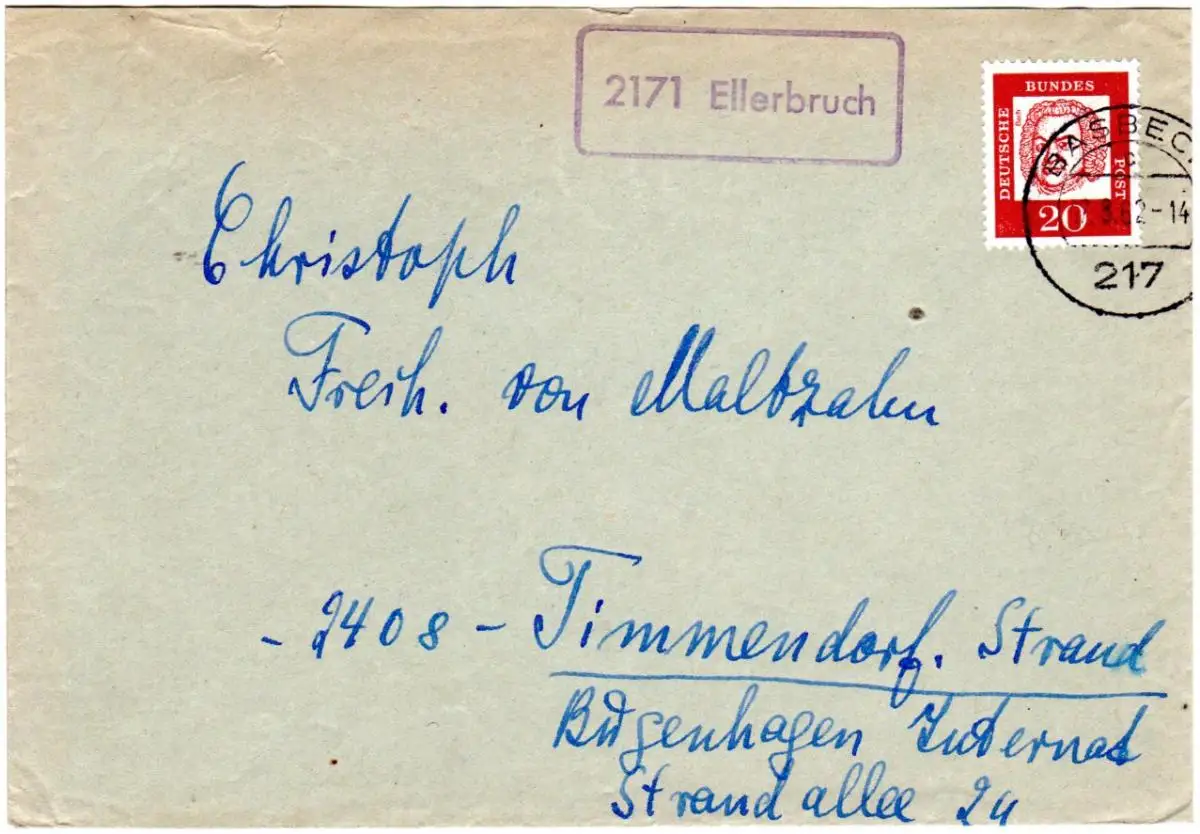 2171 Ellerbruch
DEUTSCHE
BUNDES
POST
Bach
20
BASBEC
.3.62-14
217
Christoph
Freih. von Maltzahn
- 2408 - Timmendorf. Strand
Bugenhagen Internat
Strandallee 24